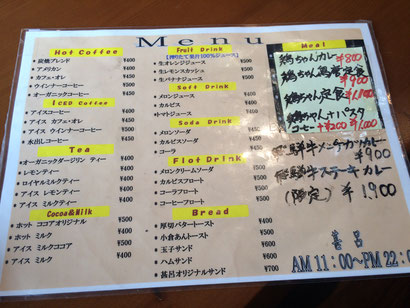 Menu
Hot Coffee
炭焼ブレンド ¥400
アメリカン ¥400
カフェ・オレ ¥450
ウインナーコーヒー ¥500
オーガニックコーヒー ¥500
Iced Coffee
アイスコーヒー ¥400
アイス カフェ・オレ ¥450
アイス ウインナーコーヒー ¥500
水出しコーヒー ¥500
Tea
オーガニックダージリン ティー
レモンティー ¥400
ロイヤルミルクティー ¥400
アイス レモンティー
アイス ミルクティー
Cocoa&Milk
ホット ココアオリジナル ¥500
ホット ミルク ¥400
アイス ミルクココア
アイス ミルク
Fruit Drink
【搾りたて果汁100%ジュース】
生オレンジジュース ¥500
生レモンスカッシュ ¥500
生バナナジュース
Soft Drink
メロンジュース ¥400
カルピス ¥400
トマトジュース ¥400
Soda Drink
メロンソーダ ¥400
カルピスソーダ
コーラ
Flot Drink
メロンクリームソーダ
カルピスフロート
コーラフロート
コーヒーフロート
Bread
厚切バタートースト
小倉あんトースト
玉子サンド
ハムサンド
甚呂オリジナルサンド ¥700
Meal
鶏ちゃんカレー ¥800
鶏ちゃん
定食
¥900
鶏ちゃん定食
鶏ちゃん
パスタ
飛騨牛メンチカツカレー
¥900
飛騨牛ステーキカレー
(限定) ¥1,900
甚呂
AM 11:00~PM 22:0